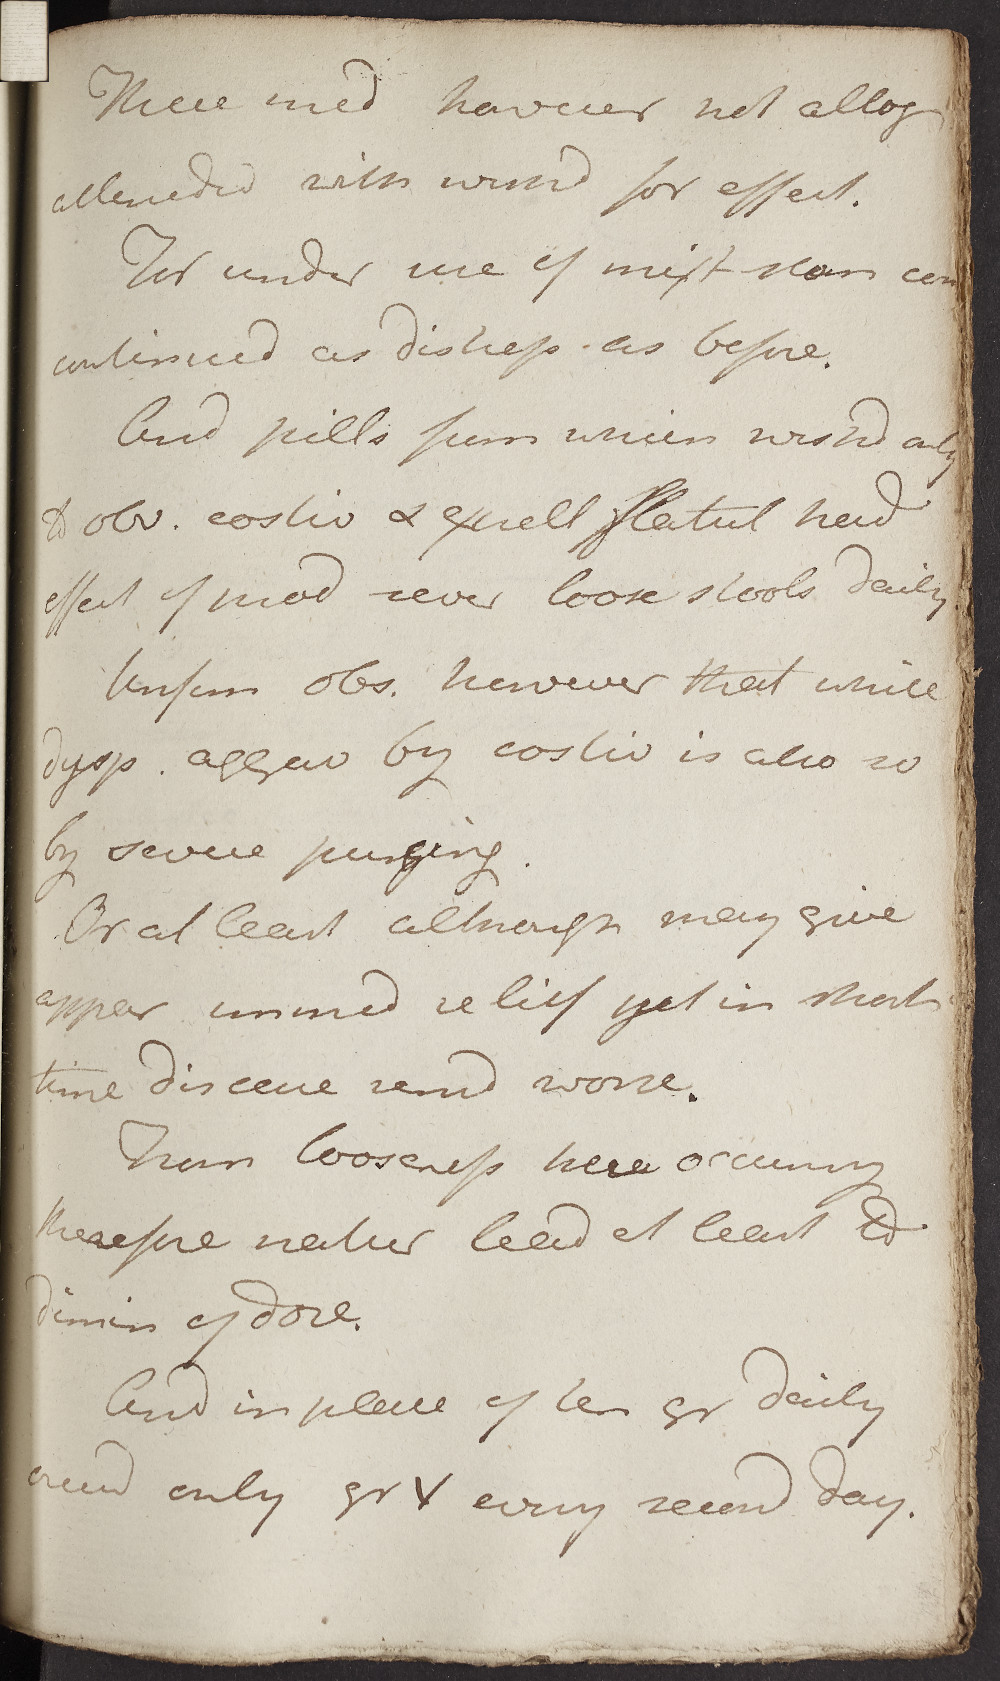 These med however not altog
attended with wishd for effect.
For under use of mixt stom con
continued as distress as before.
And pills from which wishd only
to obv. costiv & expell flatul had
effect of prod sever loose stools daily
Unfam obs. however that while
dysp. aggrav by costiv is also so
by severe purging.
Or at least although may give
appar immed relief yet in short
time disease rend worse.
From looseness here occurring
therefore natur lead at least to
dimin of dose.
And in place of ten gr daily
ord only gr V every second day.